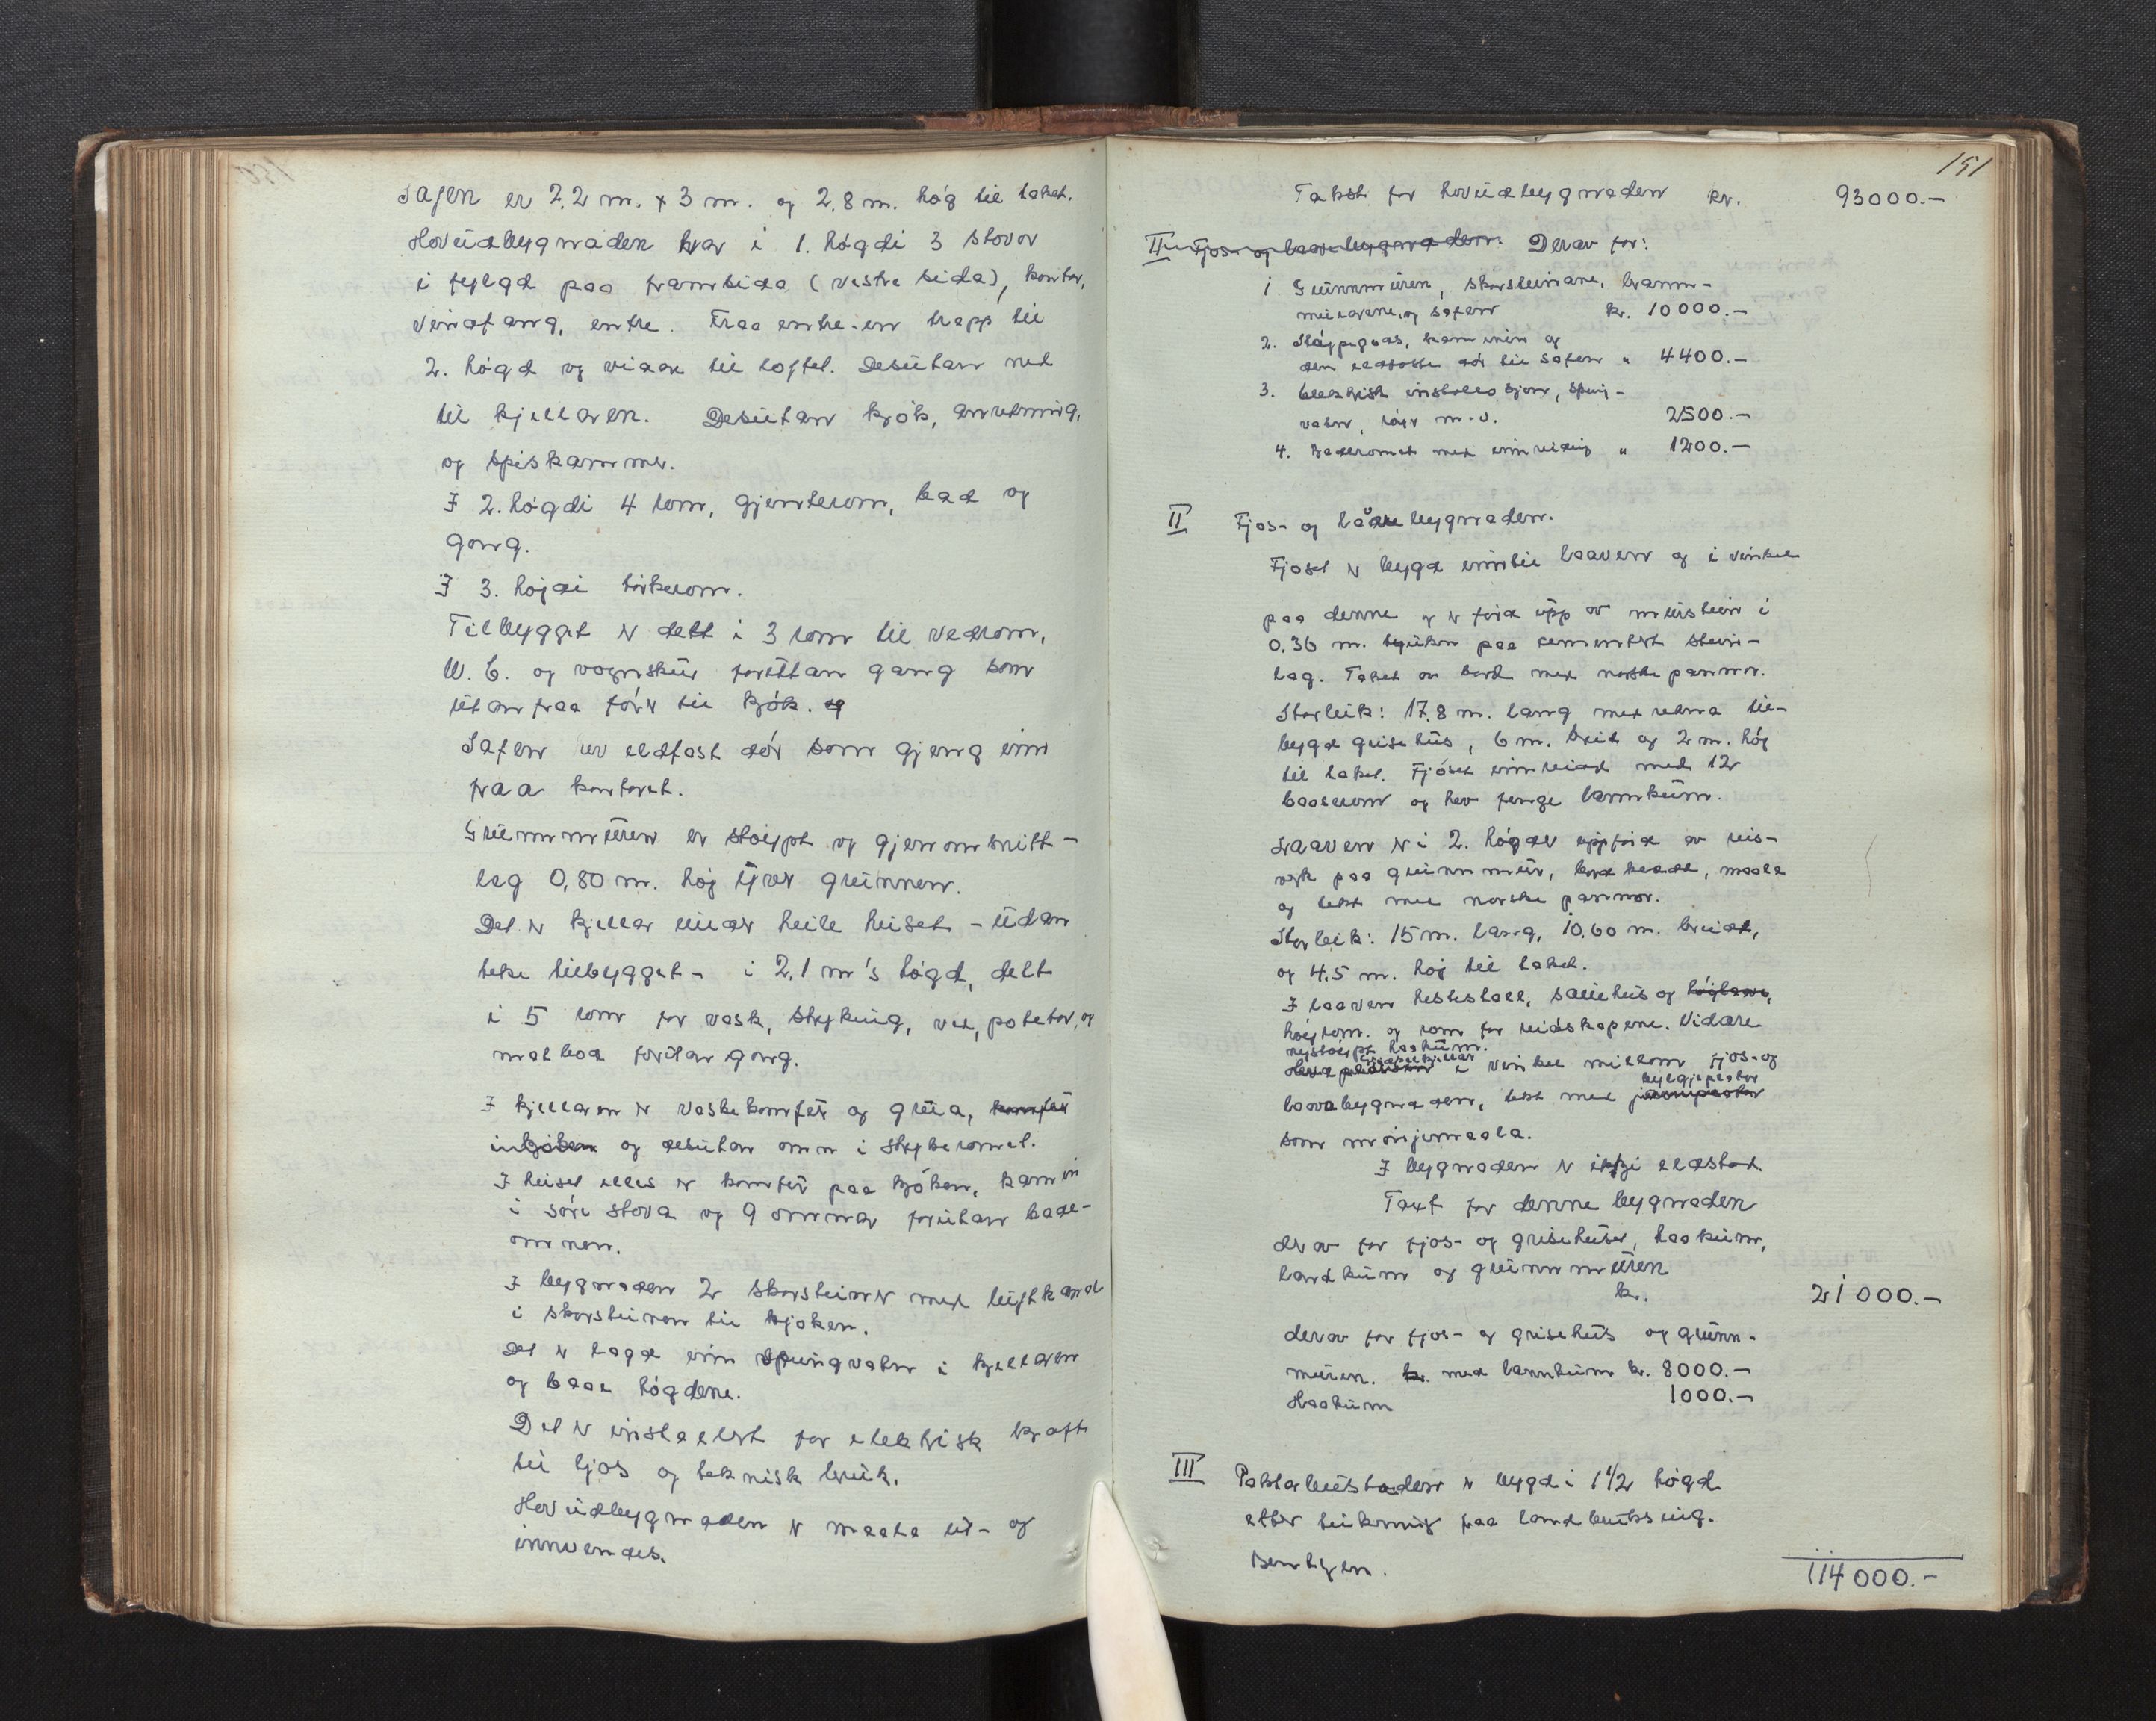 Safen er 2,2 m. x 3 m. og 2,8 m. høg til taket.
Hovudbygnaden har i 1. høgdi 3 stovor
i fylgd paa framsida (vestre sida), kontor,
vindfang, entre. Fraa entre-en trapp til
2. høgd og vidare til loftet. Desutan ned
til kjellaren. Desutan kjøk, anretning,
og spiskammer.
I 2. høgdi 4 rom, gjenterom, bad og
gong.
I 3. høgdi tørkerom.
Tilbygget er delt i 3 rom til vedrom,
W. C. og vognskur forutan gang som
utanfraa fører til kjøk. og
Safen hev eldfast dør som gjeng inn
fraa kontoret.
Grunnmuren er støypt og gjenomsnitt-
leg 0,80 m. høg yver grunnen.
Det er kjellar under heile huset - udan
ikke tilbygget - i 2,1 m's høgd, delt
i 5 rom for vask, stryking, ved, poteter, og
matbod forutan gong.
I kjellaren er vaskekomfyr og grua, komfyr
og desutan omn i strykeromet.
I huset elles er komfyr paa kjøken, kamin
i søre stova og 9 omnar forutan bade-
omnen.
I bygnaden 2 skorsteiner med luftkanal
i skorsteinen til kjøken.
Det er lagd inn springvatn i kjellaren
og baae høgdene.
Det er installert for elektrisk kraft
til ljos og teknisk bruk.
Hovudbygnaden er maala ut- og
innvendes.
151
Takst for hovudbygnaden kr. 93000.-
II Fjos- og laavebygnaden. Derav for:
1. Grunnmuren, skorsteinane, brann-
murarne, og safen kr. 10000.-
2. Støypgods, kaminen og
den eldfaste dør til safen " 4400.-
3. Elektrisk installasjon, spring-
vatn, m.v. 2500.-
4. Baderomet med innreiding " 1200.-
II Fjos- og laavebygnaden.
Fjoset er bygd inntil laaven og i vinkel
paa denne og er førd upp av murstein i
0,36 m. tjukn paa sementert stein-
lag. Taket av bord med norske pannor.
Storleik: 17,8 m. lang med til-
bygd grisehus, 6 m. breid og 2 m. høg
til taket. Fjøset innreidd med 12
baaserom og hev landkum.
Laaven er i 2. høgder uppførd av reis-
verk paa grunnmur, bordkledd, maala
og tekt med norske pannor.
Storleik: 15 m. lang, 10,60 m. breid,
og 4,5 m. høg til taket.
I laaven heststall, sauehus og høylaave,
høyrom. og rom for reidskapene. Vidare
nystøypt haakum.
i vinkel millom fjos- og
bylgjeplator
laavebygnaden, tekt med
som mønjemaala.
I bygnaden er ikkji eldstad.
Taxt for denne bygnaden
derav for fjos- og grisehuset, haakum,
landkum og grunnmuren
kr. 21000.-
derav for fjos- og grisehus og grunn-
muren. kr. med landkum kr. 8000.-
Haakum 1000.-
III Paktarbustaden er bygd i 1 1/2 høgd
etter teikning fraa landbruksing.
114000.-